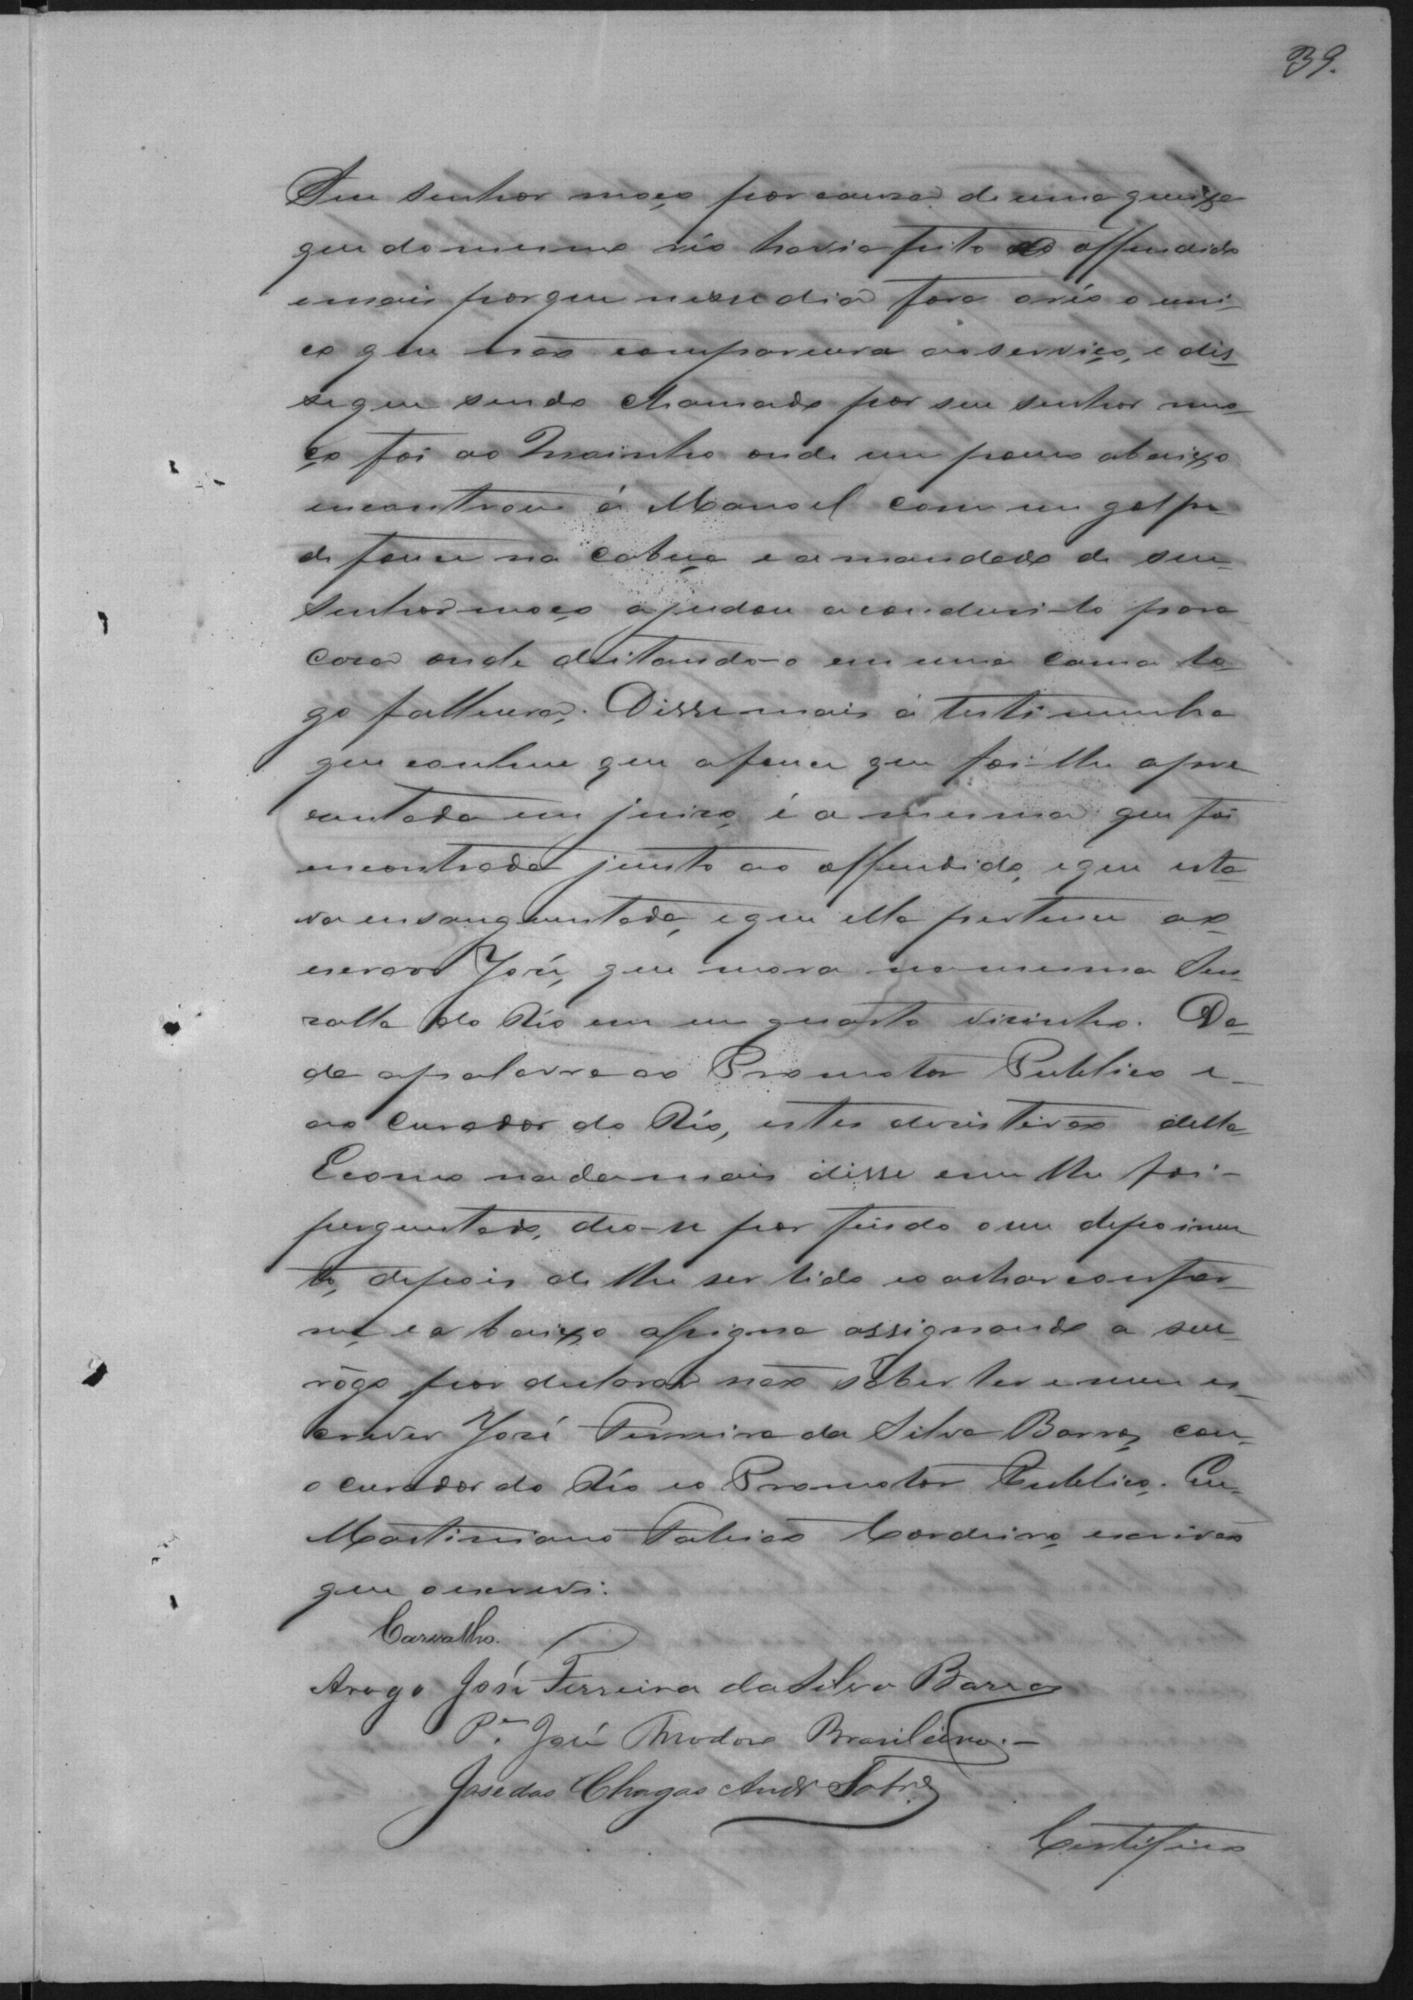 39.
Seu senhor moço por causa de uma queixa
que do mesmo réo havia feito ao offendido
e mais porque nesse dia fora o réo o uni-
co que não comparecera ao serviço, e dis-
se que sendo chamado por seu senhor mo-
ço foi ao Moinho onde um pouco abaixo
encontrou á Manoel com um golpe
de fouce na cabeça e a mandado de seu
senhor moço ajudou a conduzil-o para
casa onde deitando-o em uma cama lo-
go fallecera. Disse mais a testimunha
que conhece que a fouce que foi-lhe apre
sentada em juizo é a mesma que foi
encontrada junto ao offendido, e que esta-
va ensanguentada, e que ella pertence ao
escravo José, que mora na mesma Sen
zalla do Réo em um quarto visinho. Da-
da a palavra ao Promotor Publico e
ao curador do Réo, estes desistirão della
E como nada mais disse e nem lhe foi
perguntado, deo-se por findo o seu depoimen
to, depois de lhe ser lido e o achar confor-
me, e a baixo assigna assignando a seu
rôgo por declarar não saber ler e nem es-
crever José Ferreira da Silva Barros, com
o curador do Réo e o Promotor Publico. Eu
Martiniano Fabião Cordeiro, escrivão
que o escrevi.
Carvalho.
Arogo José Ferreira da Silva Barros
P.e José Theodoro Brasileiro.
José das Chagas And.e Sobr.o
Certifico